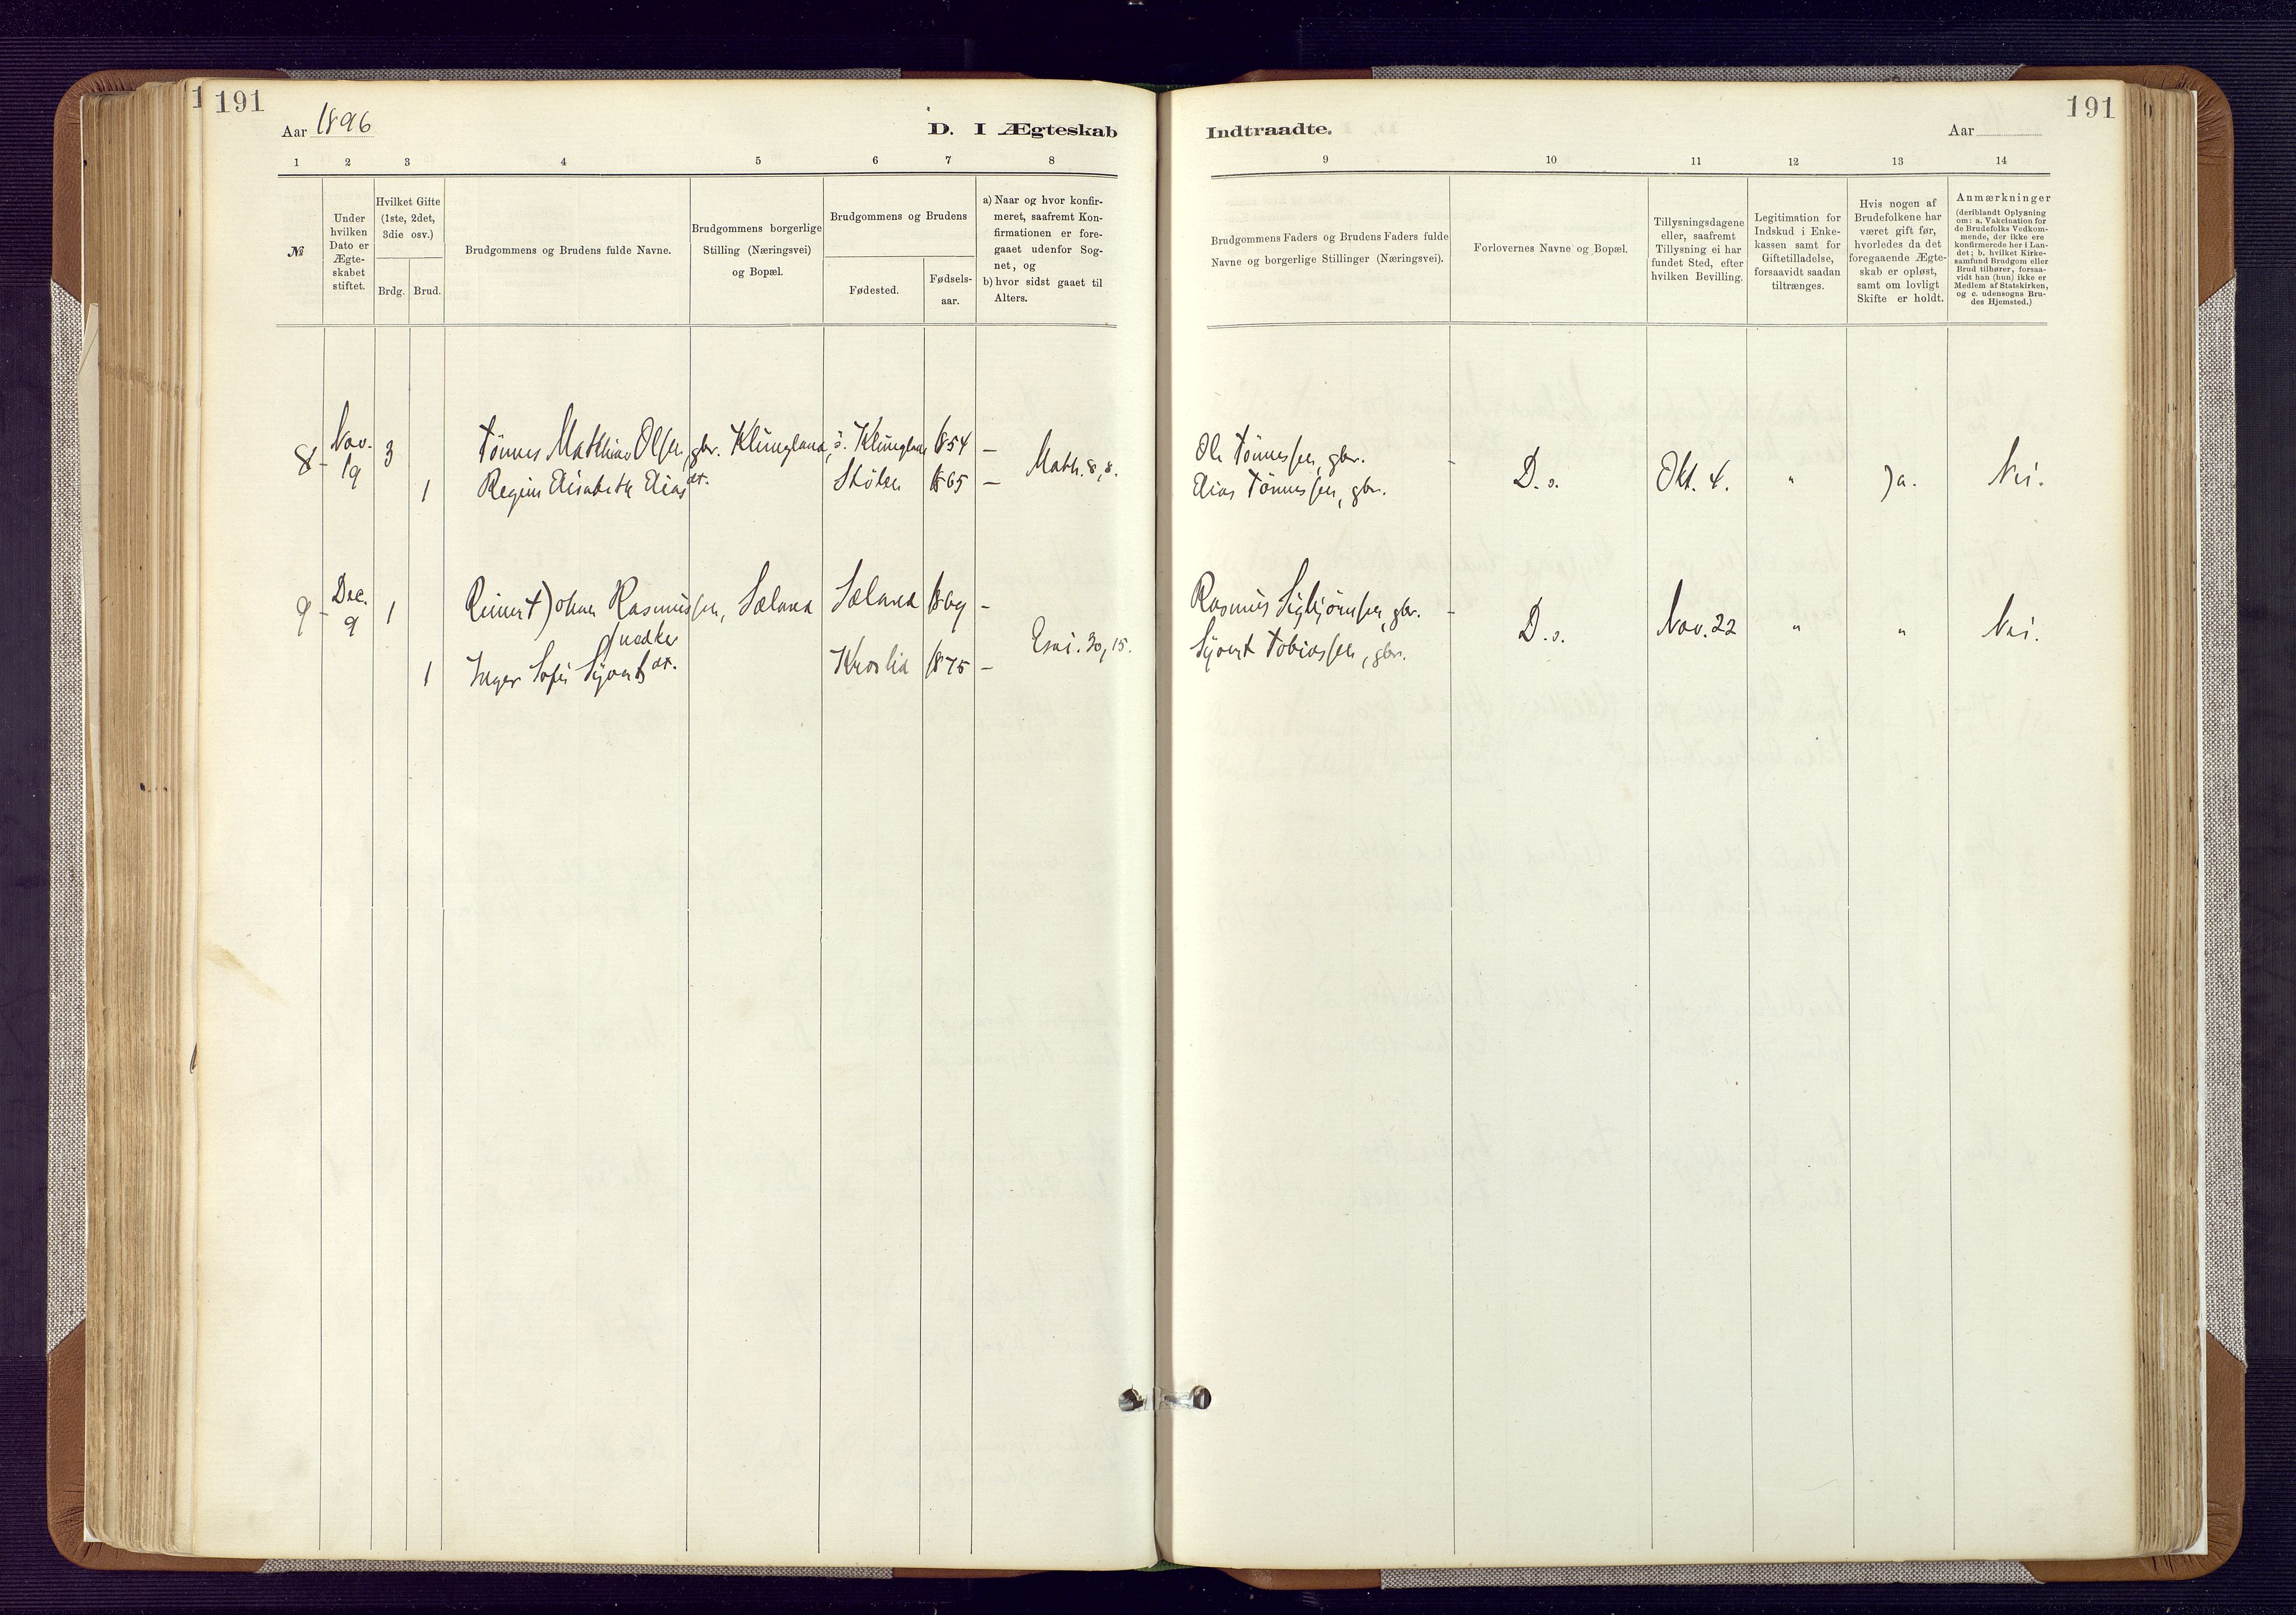 191
Aar 1896
D. I Ægteskab
1 2 3 4 5 6 7 8
№
Under hvilken Dato er Ægte-skabet stiftet.
Hvilket Gifte (1ste, 2det, 3die osv.)
Brdg. Brud.
Brudgommens og Brudens fulde Navne.
Brudgommens borgerlige Stilling (Næringsvei) og Bopæl.
Brudgommens og Brudens
Fødested.
Fødsels-aar.
a) Naar og hvor konfir-
meret, saafremt Kon-
firmationen er fore-
gaaet udenfor Sog-
net, og
b) hvor sidst gaaet til
Alters.
8 Nov. 19 3 Tønnes Mathias Olsen, gbr. Klungland, s. Klungland 1854 –
1 Regine Elisabeth Eliasdt. Stølen 1865 – Math. 8,8.
9 Dec. 9 1 Reinert Johan Rasmussen, Sæland Sæland 1869 –
Qvæker
1 Inger Sofie Syvertsdt. Kvoslid 1875 – Esai. 30,15.
191
Indtraadte.
Aar
9 10 11 12 13 14
Brudgommens Faders og Brudens Faders fulde
Navne og borgerlige Stillinger (Næringsvei).
Forlovernes Navne og Bopæl.
Tillysningsdagene
eller, saafremt
Tillysning ei har
fundet Sted, efter
hvilken Bevilling.
Legitimation for
Indskud i Enke-
kassen samt for
Giftetilladelse,
forsaavidt saadan
tiltrænges.
Hvis nogen af
Brudefolkene har
været gift før,
hvorledes da det
foregaaende Ægte-
skab er opløst,
samt om lovligt
Skifte er holdt.
Anmærkninger
(deriblandt Oplysning
om: a. Vakcination for
de Brudefolks Vedkom-
mende, der ikke ere
konfirmerede her i Lan-
det; b. hvilket Kirke-
samfund Brudgom eller
Brud tilhører, forsaa-
vidt han (hun) ikke er
Medlem af Statskirken,
og c. udensogns Bru-
des Hjemsted.)
Ole Tønnessen, gbr.
Elias Tønnessen, gbr. D. o. Okt. 4. " Ja. Nei.
Rasmus Sigbjørnsen, gbr.
Syvert Tobiassen, gbr. D. o. Nov. 22 " " Nei.